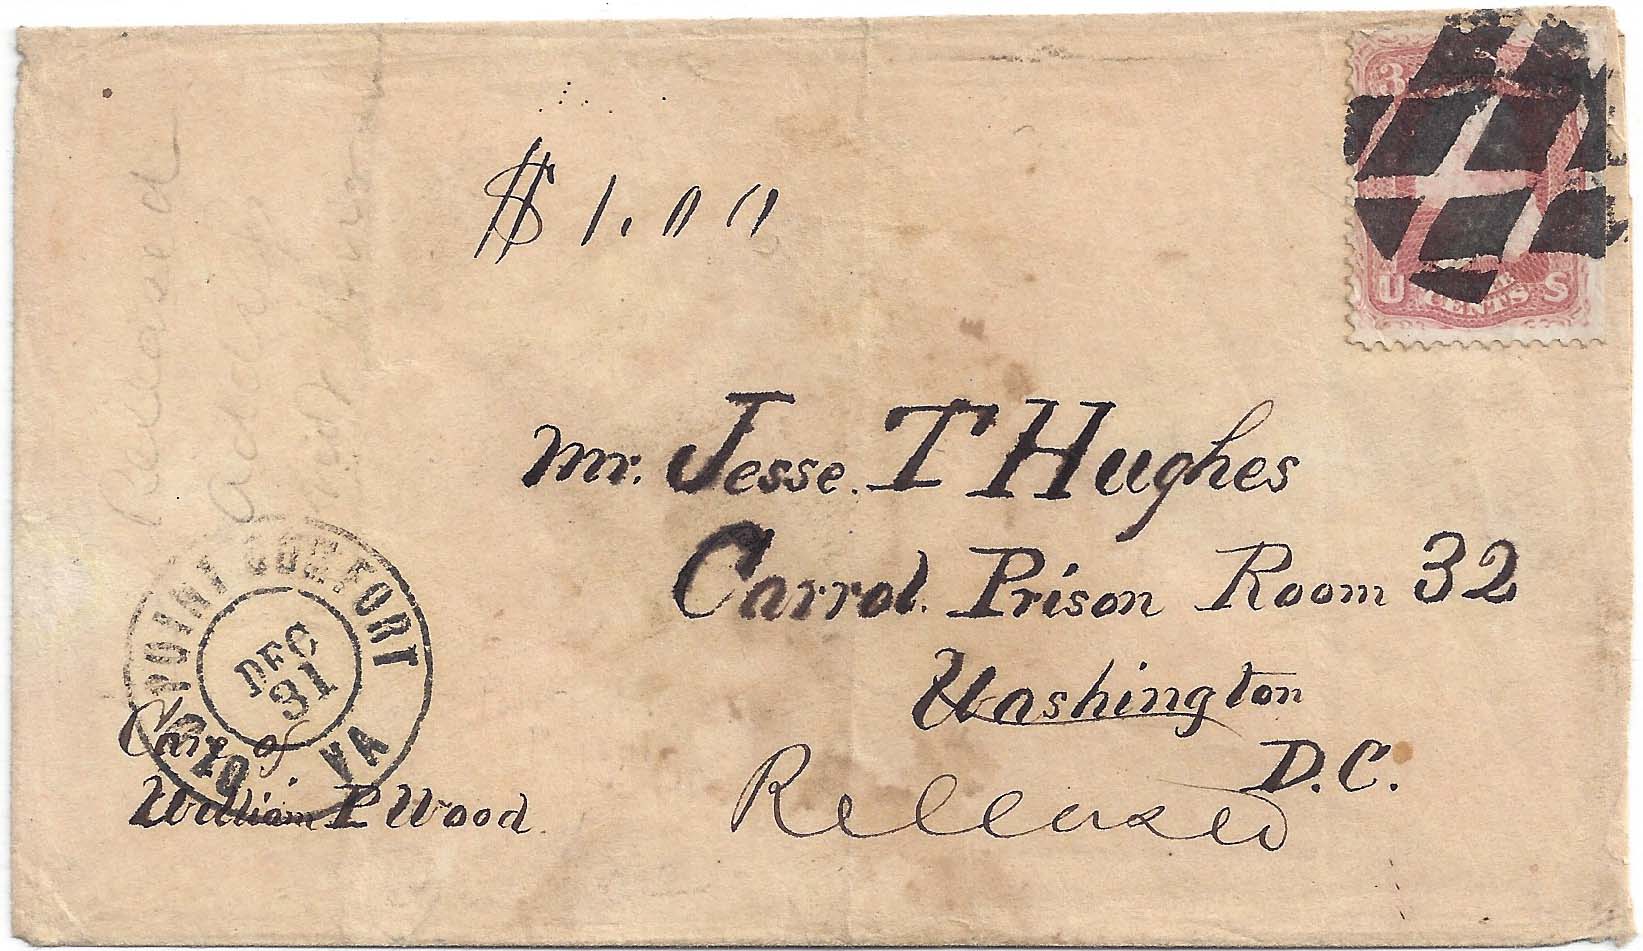 $1.00
3
U S
CENTS
Mr. Jesse. T Hughes
Carrol. Prison Room 32
Washington
D.C.
Released
OLD POINT COMFORT VA
DEC
31
Care of
William P Wood.
Released